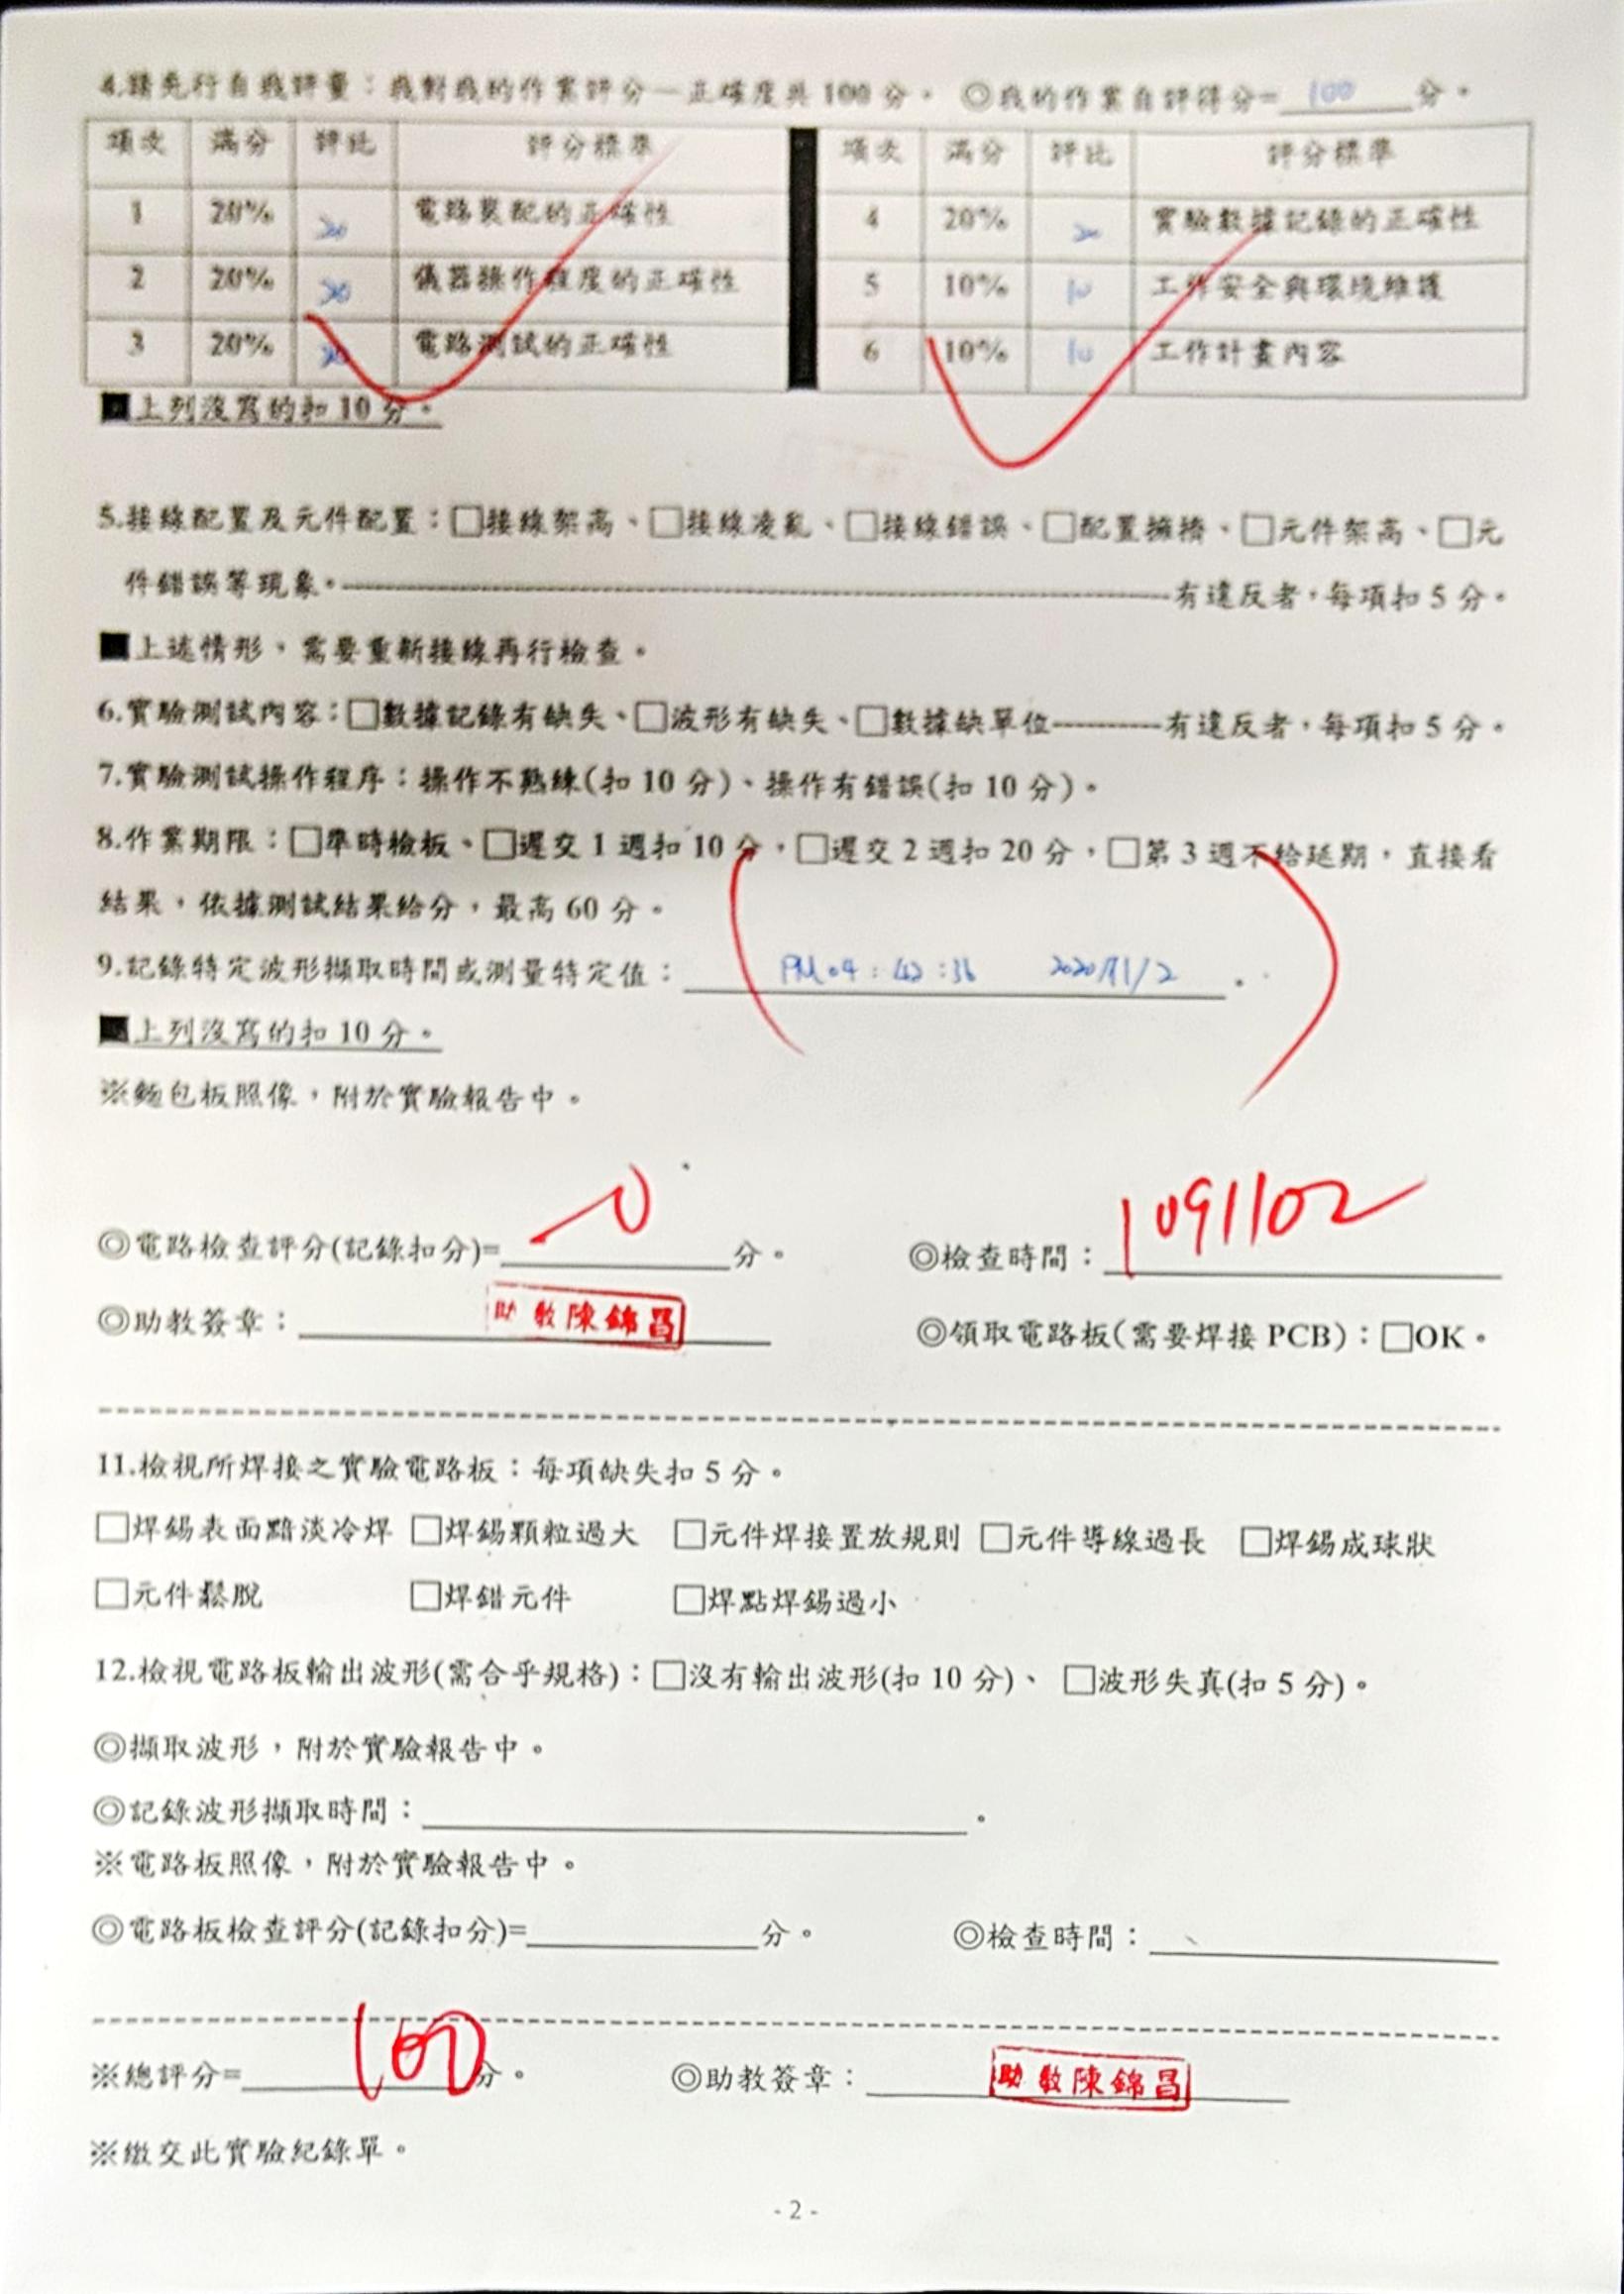 4.請先行自我評量：我對我的作業評分—正確度共 100 分。 ◎我的作業自評得分=100分。
項次 滿分 評比 評分標準 項次 滿分 評比 評分標準
1 20% 20 電路裝配的正確性 4 20% 20 實驗數據記錄的正確性
2 20% 20 儀器操作程度的正確性 5 10% 10 工作安全與環境維護
3 20% 20 電路測試的正確性 6 10% 10 工作計畫內容
■上列沒寫的扣 10 分。
5.接線配置及元件配置：□接線架高、□接線凌亂、□接線錯誤、□配置擁擠、□元件架高、□元
件錯誤等現象。------------------------------有違反者，每項扣 5 分。
■上述情形，需要重新接線再行檢查。
6.實驗測試內容：□數據記錄有缺失、□波形有缺失、□數據缺單位----------有違反者，每項扣 5 分。
7.實驗測試操作程序：操作不熟練(扣 10 分)、操作有錯誤(扣 10 分)。
8.作業期限：□準時檢板、□遲交 1 週扣 10 分，□遲交 2 週扣 20 分，□第 3 週不給延期，直接看
結果，依據測試結果給分，最高 60 分。
9.記錄特定波形擷取時間或測量特定值：PM 04:42:36 2020/11/2。
■上列沒寫的扣 10 分。
※麵包板照像，附於實驗報告中。
◎電路檢查評分(記錄扣分)=分。 ◎檢查時間：1091102
◎助教簽章：助教陳錦昌 ◎領取電路板(需要焊接 PCB)：□OK。
11.檢視所焊接之實驗電路板：每項缺失扣 5 分。
□焊錫表面黯淡冷焊 □焊錫顆粒過大 □元件焊接置放規則 □元件導線過長 □焊錫成球狀
□元件鬆脫 □焊錯元件 □焊點焊錫過小
12.檢視電路板輸出波形(需合乎規格)：□沒有輸出波形(扣 10 分)、 □波形失真(扣 5 分)。
◎擷取波形，附於實驗報告中。
◎記錄波形擷取時間：。
※電路板照像，附於實驗報告中。
◎電路板檢查評分(記錄扣分)=分。 ◎檢查時間：
※總評分=100分。 ◎助教簽章：助教陳錦昌
※繳交此實驗紀錄單。
- 2 -